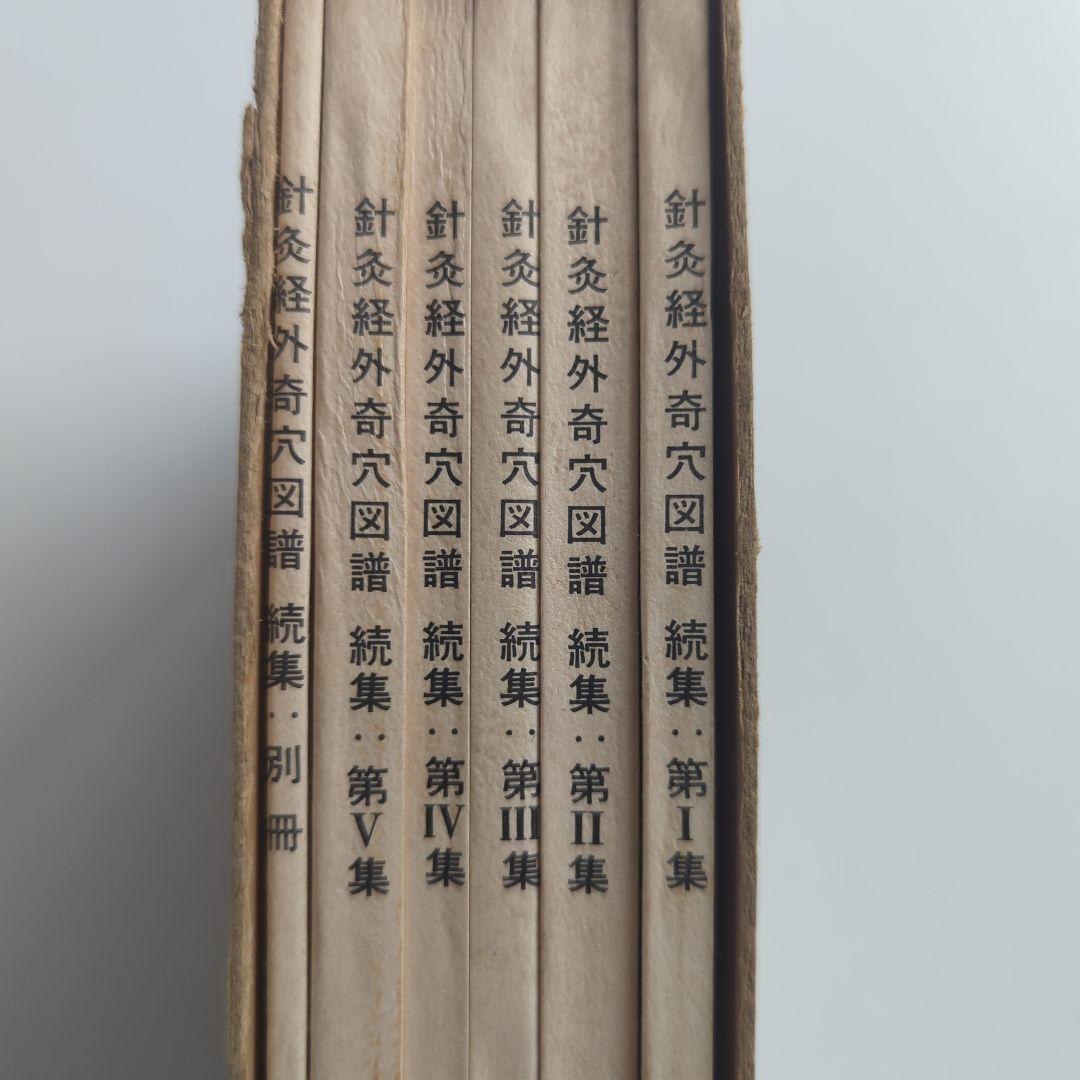 針灸経外奇穴図譜 続集：第I集
針灸経外奇穴図譜 続集：第II集
針灸経外奇穴図譜 続集：第III集
針灸経外奇穴図譜 続集：第IV集
針灸経外奇穴図譜 続集：第V集
針灸経外奇穴図譜 続集：別冊